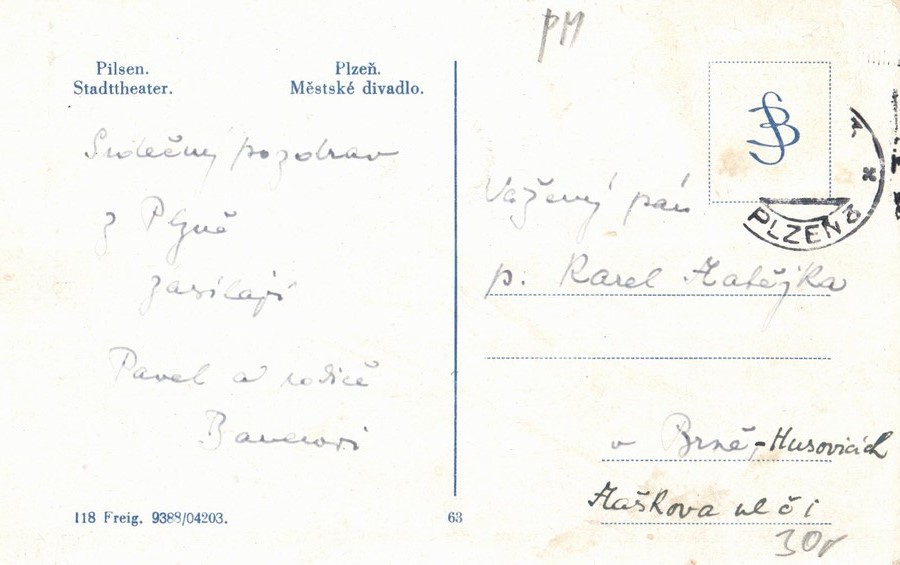 PM
Pilsen.
Stadttheater.
Plzeň.
Městské divadlo.
Srdečný pozdrav
z Plzně
zasílají
Pavel a rodiče
118 Freig. 9388/04203.
63
PLZEŇ
Vážený pán
p. Karel Matějka
v Brně,-Husovicích
Haškova ul č i
30,-